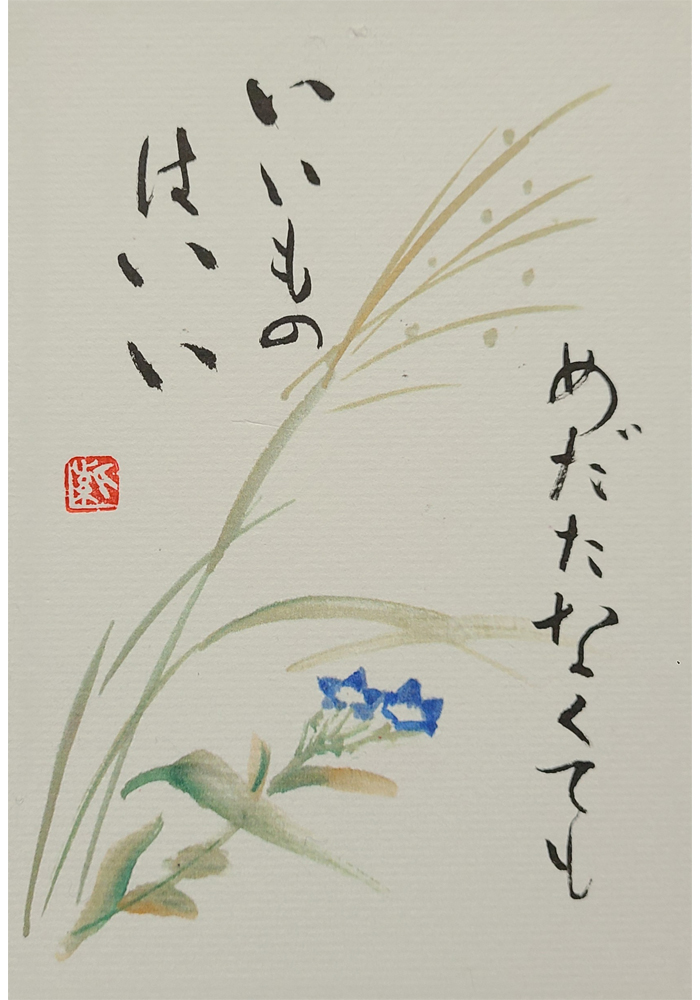 めだたなくても
いいもの
はいい